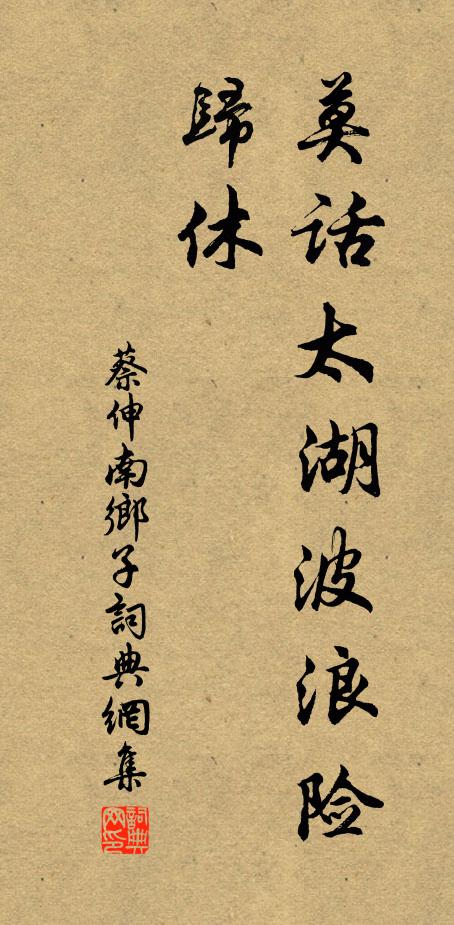 莫话太湖波浪险
歸休
蔡伸南鄉子詞典網集
詞典网印